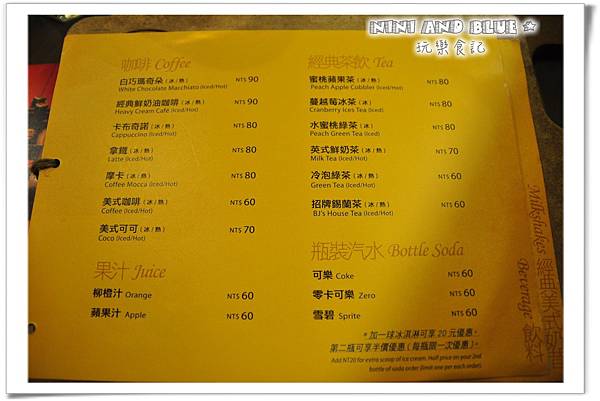 NINI AND BLUE
玩樂食記
咖啡 Coffee
白巧瑪奇朵 (冰/熱) NT$ 90
White Chocolate Macchiato (Iced/Hot)
經典鮮奶油咖啡 (冰/熱) NT$ 90
Heavy Cream Café (Iced/Hot)
卡布奇諾 (冰/熱) NT$ 80
Cappuccino (Iced/Hot)
拿鐵 (冰/熱) NT$ 80
Latte (Iced/Hot)
摩卡 (冰/熱) NT$ 80
Coffee Mocca (Iced/Hot)
美式咖啡 (冰/熱) NT$ 60
Coffee (Iced/Hot)
美式可可 (冰/熱) NT$ 70
Coco (Iced/Hot)
果汁 Juice
柳橙汁 Orange NT$ 60
蘋果汁 Apple NT$ 60
經典茶飲 Tea
蜜桃蘋果茶 (冰/熱) NT$ 80
Peach Apple Cobbler (Iced/Hot)
蔓越莓冰茶 (冰) NT$ 80
Cranberry Ices Tea (Iced)
水蜜桃綠茶 (冰) NT$ 80
Peach Green Tea (Iced)
英式鮮奶茶 (冰/熱) NT$ 70
Milk Tea (Iced/Hot)
冷泡綠茶 (冰/熱) NT$ 60
Green Tea (Iced/Hot)
招牌錫蘭茶 (冰/熱) NT$ 60
BJ's House Tea (Iced/Hot)
瓶裝汽水 Bottle Soda
可樂 Coke NT$ 60
零卡可樂 Zero NT$ 60
雪碧 Sprite NT$ 60
*加一球冰淇淋可享 20 元優惠。
第二瓶可享半價優惠 (每瓶限一次優惠)。
Add NT20 for extra scoop of ice cream. Half price on your 2nd
bottle of soda order (limit one per each order)
Milkshakes 經典美式奶
Beverage 飲料